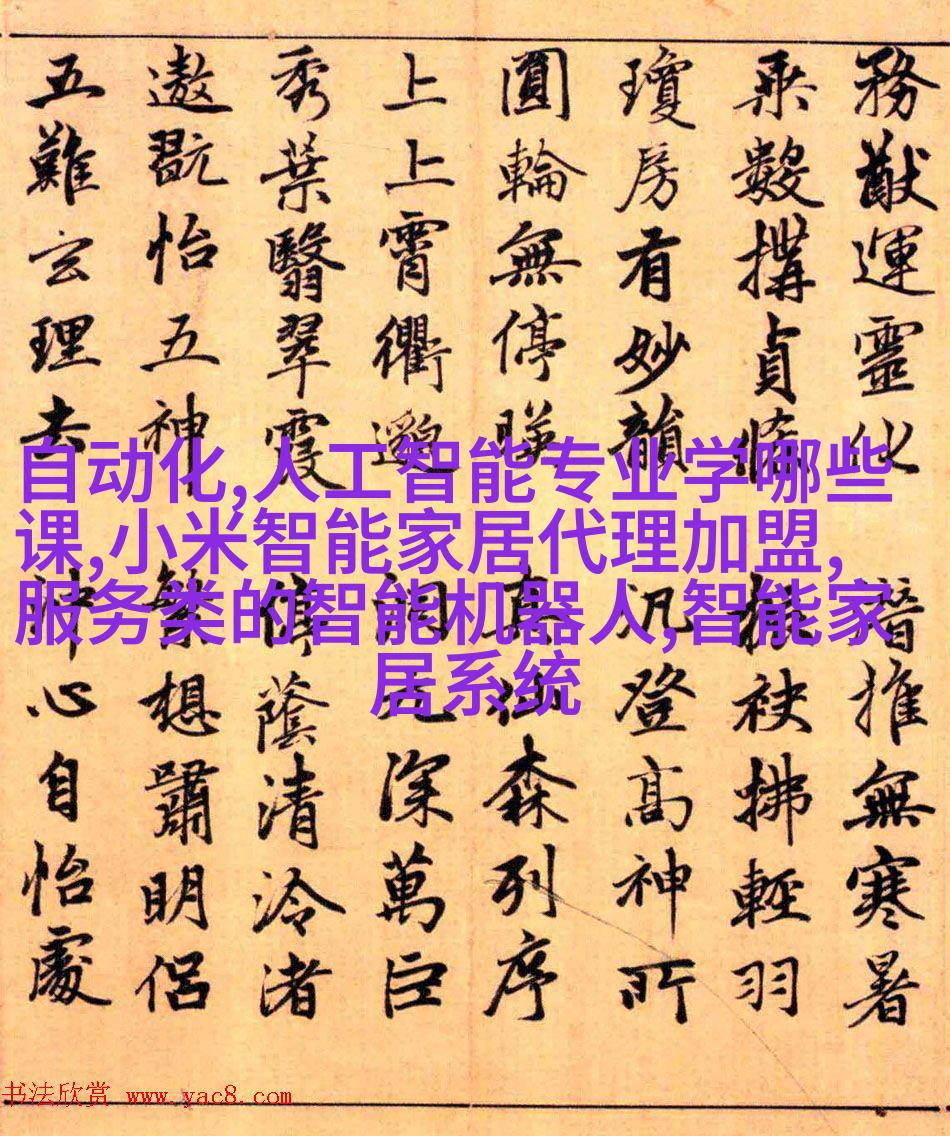 務猷運靈化 推無寒暑
乘數搆貞條 振袂拂輕羽
瓊房有妙韻 汎登高神所
圓輪無停暎 真森列序
上上霄衢邈 洞元深萬巨
秀葉翳翠霞 停蔭清泠渚
遨翫怡五神 繁想嘯明侶
五難玄理去 沖心自怡處
自动化,人工智能专业学哪些
课,小米智能家居代理加盟,
服务类的智能机器人,智能家
居系统
书法欣赏 www.yac8.com